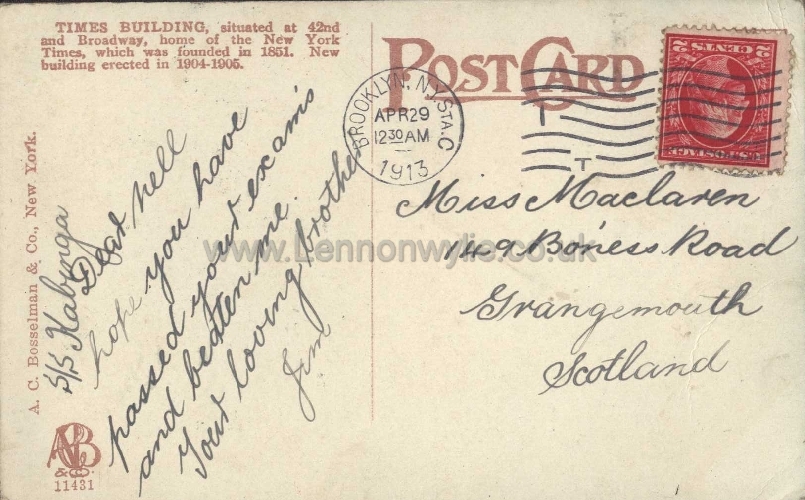 TIMES BUILDING, situated at 42nd
and Broadway, home of the New York
Times, which was founded in 1851. New
building erected in 1904-1905.
POST CARD
BROOKLYN, N.Y. STA. C
APR 29
12 30 AM
1913
2 CENTS 2
U.S. POSTAGE
A. C. Bosselman & Co., New York.
S/S Kabinga
Dear Nell
hope you have
passed your exam's
and beaten me.
Your loving brother
Jim
Miss Maclaren
149 Boness Road
Grangemouth
Scotland
ACB
& CO.
11431
www.Lennonwylie.co.uk